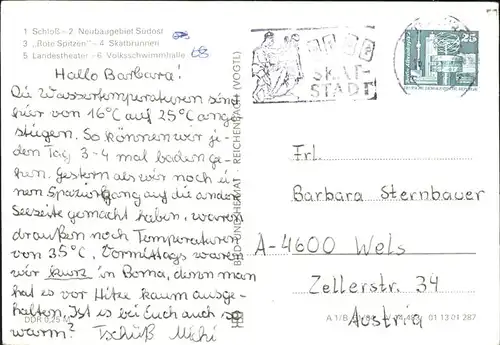 1 Schloß – 2 Neubaugebiet Südost
3 „Rote Spitzen“ – 4 Skatbrunnen
5 Landestheater – 6 Volksschwimmhalle
Hallo Barbara!
Die Wassertemperaturen sind
hier von 16°C auf 25°C ange-
stiegen. So können wir je-
den Tag 3-4 mal baden ge-
hen. Gestern als wir noch ei-
nen Spaziergang auf die andere
Seeseite gemacht haben, waren
draußen noch Temperaturen
von 35°C. Vormittags waren
wir kurz in Borna, denn man
hat es vor Hitze kaum ausge-
halten. Ist es bei Euch auch so
warm? Tschüß Michi
DDR 0,25 M
BILD UND HEIMAT REICHENBACH (VOGTL)
SKAT-
STADT
25
Frl.
Barbara Sternbauer
A-4600 Wels
Zellerstr. 34
Austria
A 1/B 01 13 01 287